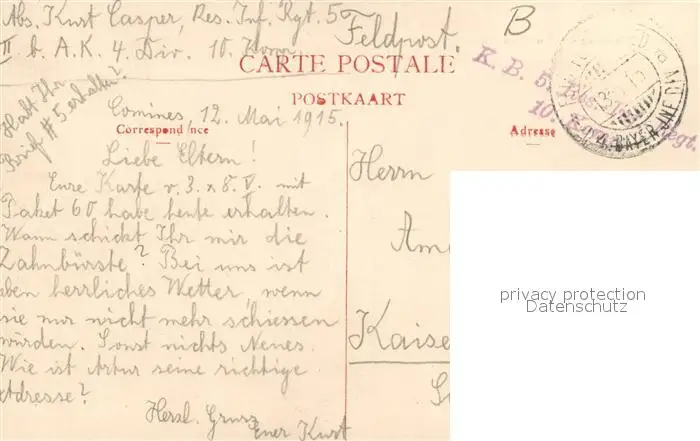 Abs. Kurt Casper, Res. Inf. Rgt. 5
II b. A.K. 4. Div. 10. Komp.
Feldpost.
B
CARTE POSTALE
POSTKAART
K. B. 5.
10.
Habt Ihr
Brief # 5 erhalten?
Comines, 12. Mai 1915.
Correspondance
Adresse
Liebe Eltern!
Eure Karte v. 3. & 8. V. mit
Paket 60 habe heute erhalten.
Wann schickt Ihr mir die
Zahnbürste? Bei uns ist
eben herrliches Wetter, wenn
sie nur nicht mehr schiessen
würden. Sonst nichts Neues.
Wie ist Artur seine richtige
Adresse?
Herzl. Gruss
Euer Kurt
Herrn
Am
Kaise
privacy protection
Datenschutz